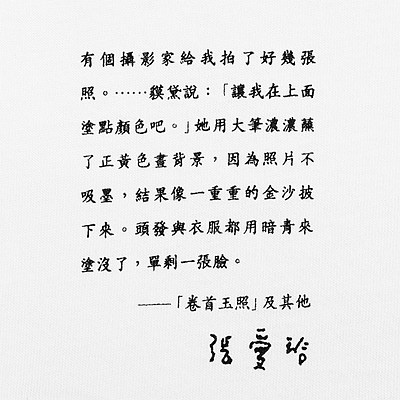 有個攝影家給我拍了好幾張
照。……貘黛說：「讓我在上面
塗點顏色吧。」她用大筆濃濃蘸
了正黃色畫背景，因為照片不
吸墨，結果像一重重的金沙披
下來。頭發與衣服都用暗青來
塗沒了，單剩一張臉。
——「卷首玉照」及其他
張愛玲